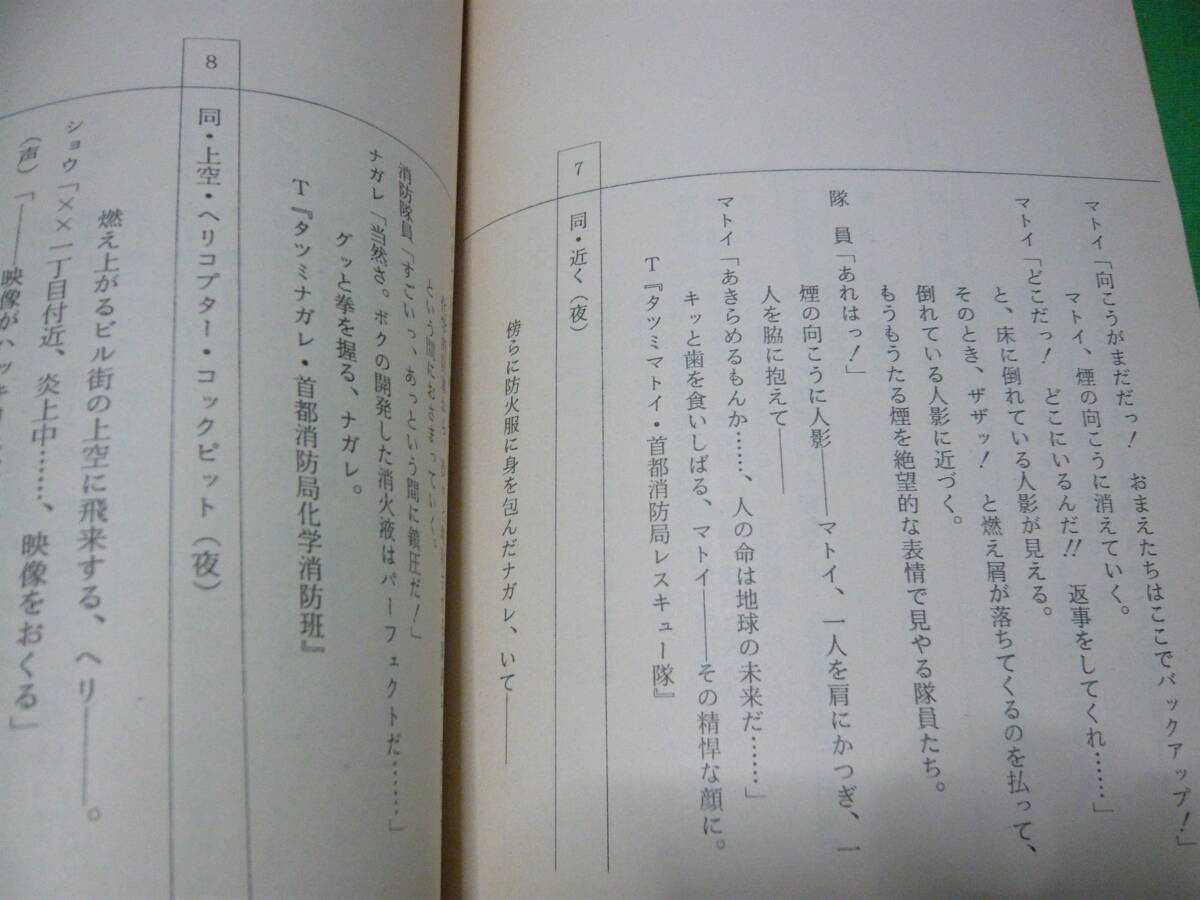 マトイ「向こうがまだだっ！　おまえたちはここでバックアップ！」
マトイ、煙の向こうに消えていく。
マトイ「どこだっ！　どこにいるんだ!!　返事をしてくれ……」
と、床に倒れている人影が見える。
そのとき、ザザッ！　と燃え屑が落ちてくるのを払って、
倒れている人影に近づく。
もうもうたる煙を絶望的な表情で見やる隊員たち。
隊　員「あれはっ！」
煙の向こうに人影――マトイ、一人を肩にかつぎ、一
人を脇に抱えて――
マトイ「あきらめるもんか……、人の命は地球の未来だ……」
キッと歯を食いしばる、マトイ――その精悍な顔に。
T『タツミマトイ・首都消防局レスキュー隊』
7　同・近く（夜）
傍らに防火服に身を包んだナガレ、いて――
という間におさまっていく。
消防隊員「すごいっ、あっという間に鎮圧だ！」
ナガレ「当然さ。ボクの開発した消火液はパーフェクトだ……」
グッと拳を握る、ナガレ。
T『タツミナガレ・首都消防局化学消防班』
8　同・上空・ヘリコプター・コックピット（夜）
燃え上がるビル街の上空に飛来する、ヘリ――。
ショウ「××一丁目付近、炎上中……、映像をおくる」
（声）「――映像がハッキ